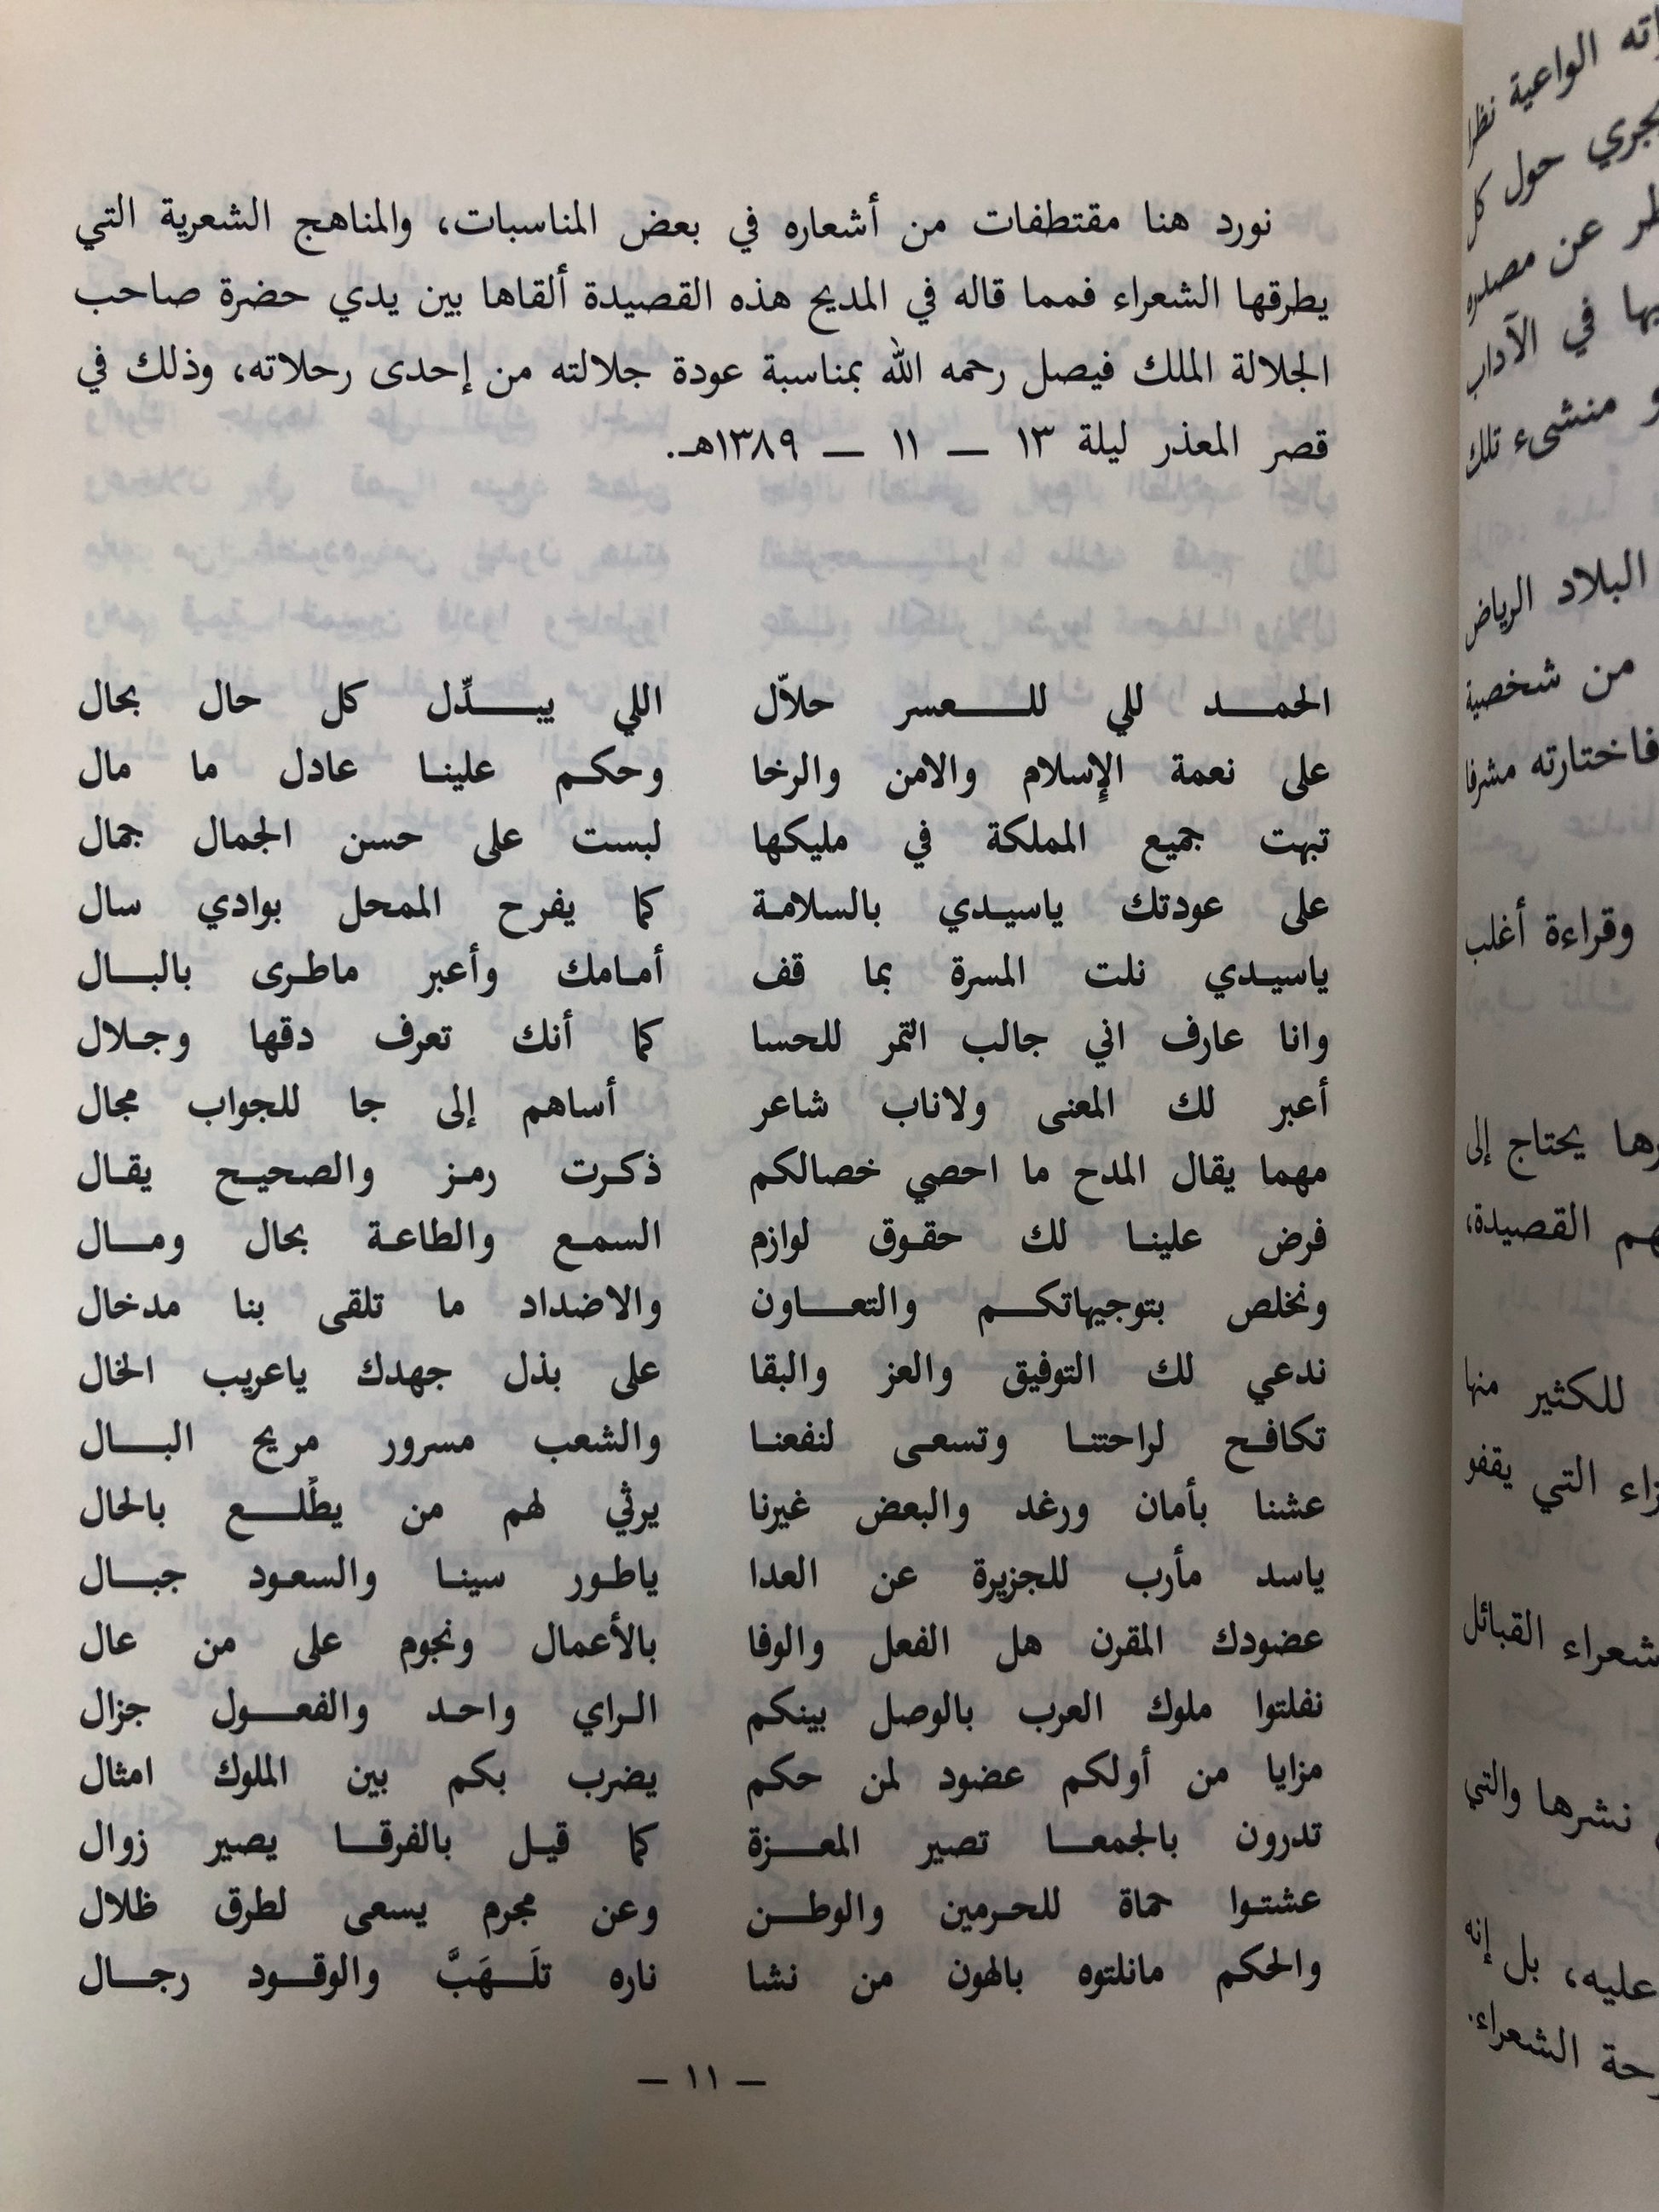 نورد هنا مقتطفات من أشعاره في بعض المناسبات، والمناهج الشعرية التي
يطرقها الشعراء فمما قاله في المديح هذه القصيدة ألقاها بين يدي حضرة صاحب
الجلالة الملك فيصل رحمه الله بمناسبة عودة جلالته من إحدى رحلاته، وذلك في
قصر المعذر ليلة ١٣ — ١١ — ١٣٨٩هـ.
الحمد للي للعسر حلاّل اللي يبدِّل كل حال بحال
على نعمة الإسلام والامن والرخا وحكم علينا عادل ما مال
تبهت جميع المملكة في مليكها لبست على حسن الجمال جمال
على عودتك ياسيدي بالسلامة كما يفرح الممحل بوادي سال
ياسيدي نلت المسرة بما قف أمامك وأعبر ماطرى بالبال
وانا عارف اني جالب التمر للحسا كما أنك تعرف دقها وجلال
أعبر لك المعنى ولاناب شاعر أساهم إلى جا للجواب مجال
مهما يقال المدح ما احصي خصالكم ذكرت رمز والصحيح يقال
فرض علينا لك حقوق لوازم السمع والطاعة بحال ومال
ونخلص بتوجيهاتكم والتعاون والاضداد ما تلقى بنا مدخال
ندعي لك التوفيق والعز والبقا على بذل جهدك ياعريب الخال
تكافح لراحتنا وتسعى لنفعنا والشعب مسرور مريح البال
عشنا بأمان ورغد والبعض غيرنا يرثي لهم من يطّلع بالحال
ياسد مأرب للجزيرة عن العدا ياطور سينا والسعود جبال
عضودك المقرن هل الفعل والوفا بالأعمال ونجوم على من عال
نفلتوا ملوك العرب بالوصل بينكم الراي واحد والفعول جزال
مزايا من أولكم عضود لمن حكم يضرب بكم بين الملوك امثال
تدرون بالجمعا تصير المعزة كما قيل بالفرقا يصير زوال
عشتوا حماة للحرمين والوطن وعن مجرم يسعى لطرق ظلال
والحكم مانلتوه بالهون من نشا ناره تلَهَبَّ والوقود رجال
— ١١ —
الواعية نظرا
حول كل
عن مصدره
في الآداب
منشىء تلك
البلاد الرياض
من شخصية
فاختارته مشرفا
وقراءة أغلب
يحتاج إلى
القصيدة،
للكثير منها
التي يقفو
شعراء القبائل
نشرها والتي
عليه، بل إنه
الشعراء.